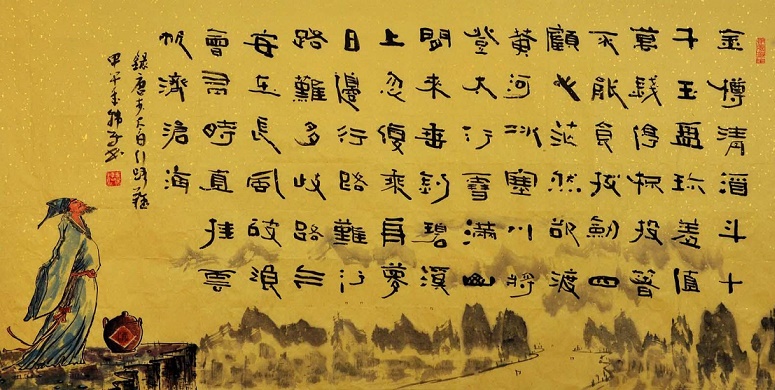 金樽清酒斗十
千玉盤珍羞值
萬錢停杯投箸
不能食拔劍四
顧心茫然欲渡
黃河冰塞川將
登太行雪滿山
閒來垂釣碧溪
上忽復乘舟夢
日邊行路難行
路難多岐路今
安在長風破浪
會有時直挂雲
帆濟滄海
錄唐李太白行路難
甲午年